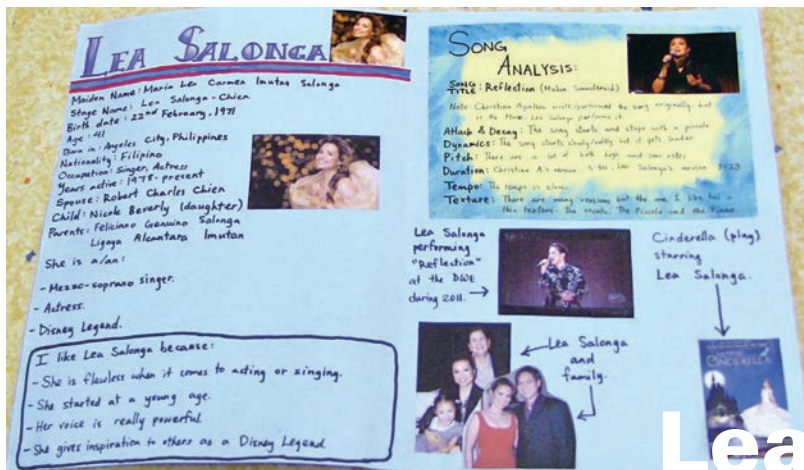 LEA SALONGA
Maiden Name: Maria Lea Carmen Imutan Salonga
Stage Name: Lea Salonga-Chien
Birth date: 22nd February, 1971
Age: 41
Born in: Angeles City, Philippines
Nationality: Filipino
Occupation: Singer, Actress
Years active: 1978-present
Spouse: Robert Charles Chien
Child: Nicole Beverly (daughter)
Parents: Feliciano Genuino Salonga
Ligaya Alcantara Imutan
She is a/an:
- Mezzo-soprano singer.
- Actress.
- Disney Legend.
I like Lea Salonga because:
- She is flawless when it comes to acting or singing.
- She started at a young age.
- Her voice is really powerful.
- She gives inspiration to others as a Disney Legend.
SONG
ANALYSIS:
SONG
TITLE: Reflection (Mulan Soundtrack)
Note: Christina Aguilera wrote/performed the song originally, but
in the Movie, Lea Salonga performs it.
Attack & Decay: The song starts and stops with a piccolo
Dynamics: The song starts slowly/softly but it gets louder
Pitch: There are a lot of both high and low notes
Duration: Christina A's version Lea Salonga's version
Tempo: The tempo is slow.
Texture: There are many versions but the one I like has a
thin texture. The vocals, The Piccolo and the Piano
Lea Salonga
performing
"Reflection"
at the DWE
during 2011.
Cinderella (play)
starring
Lea Salonga.
Lea Salonga
and
family.
CINDERELLA
Lea